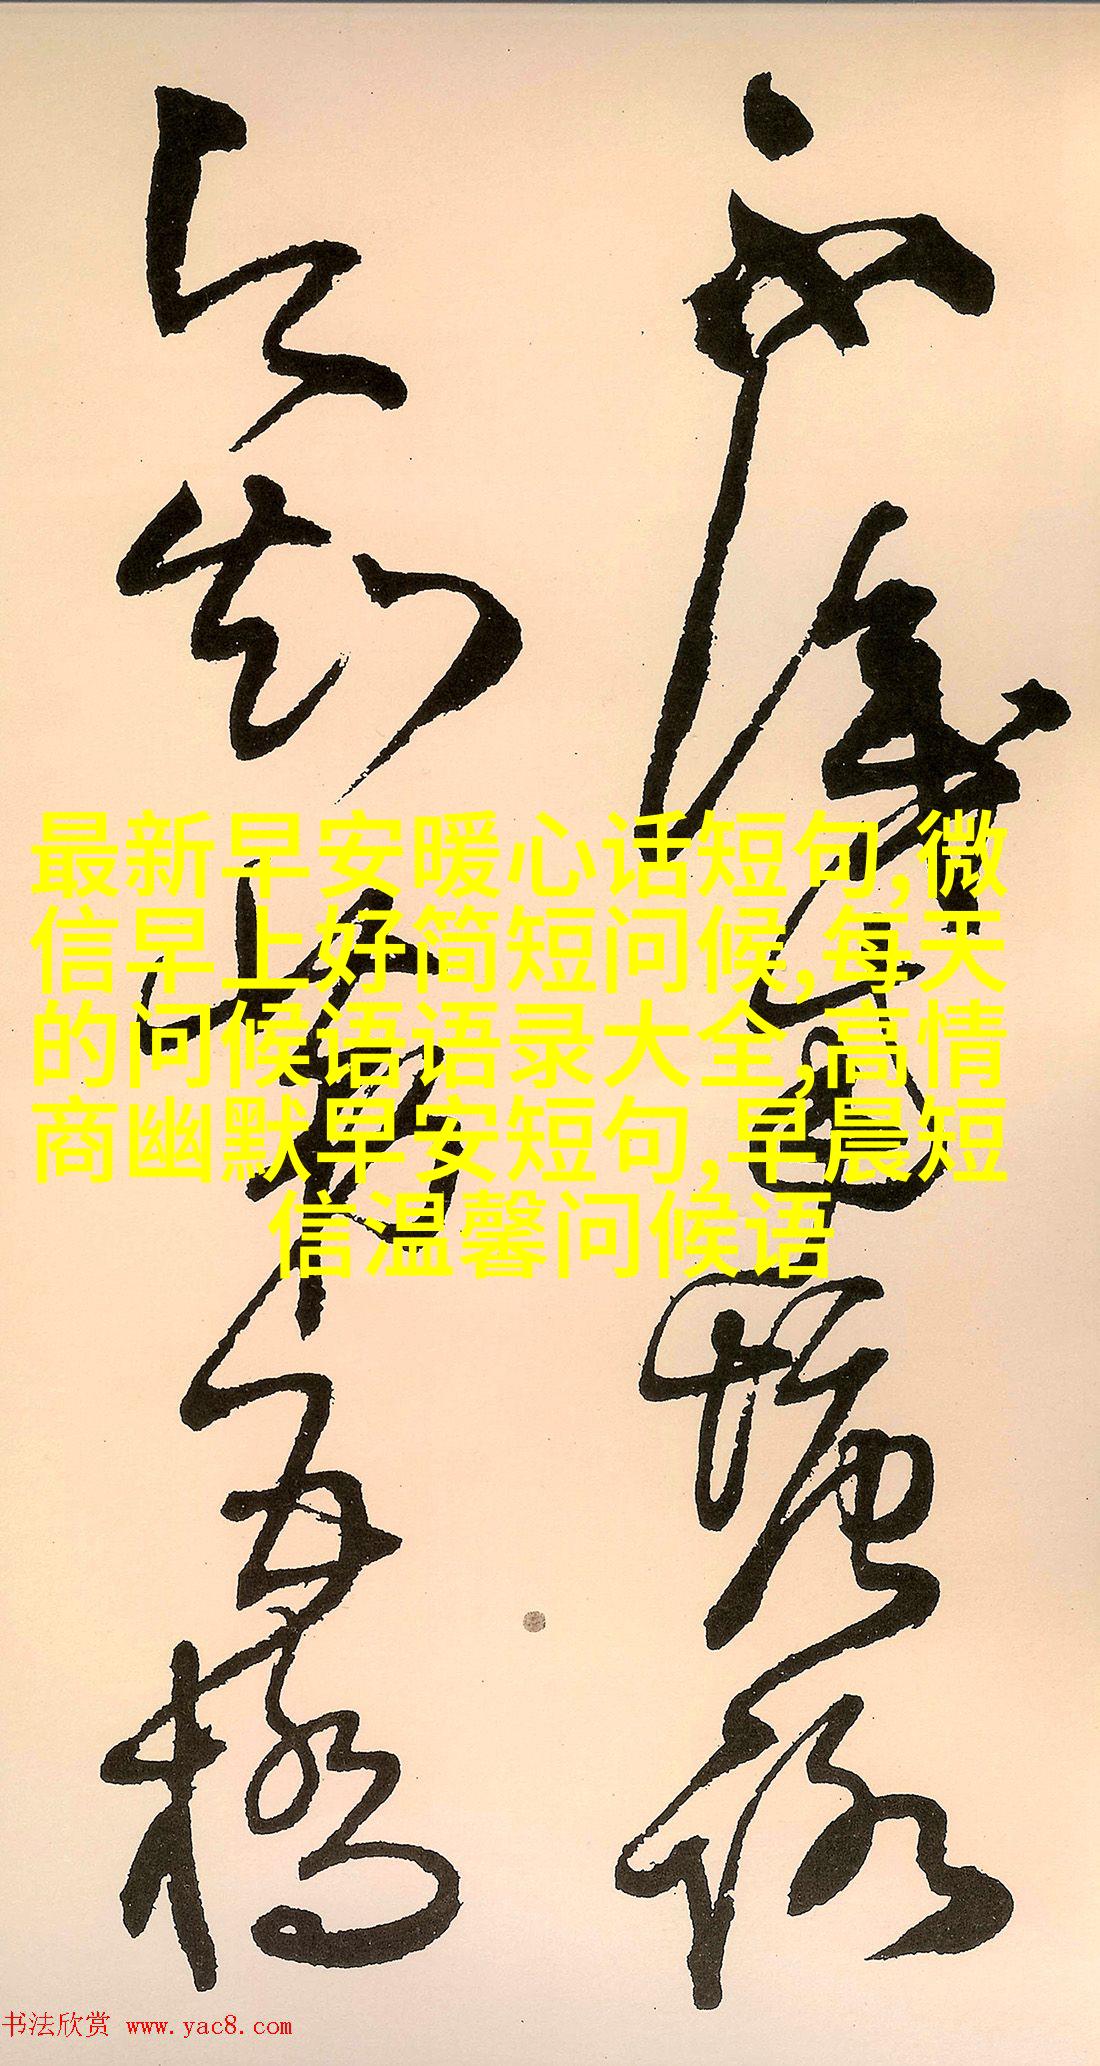 不識南塘路
今知第五橋
最新早安暖心话短句,微
信早上好简短问候,每天
的问候语语录大全,高情
商幽默早安短句,早晨短
信温馨问候语
书法欣赏 www.yac8.com